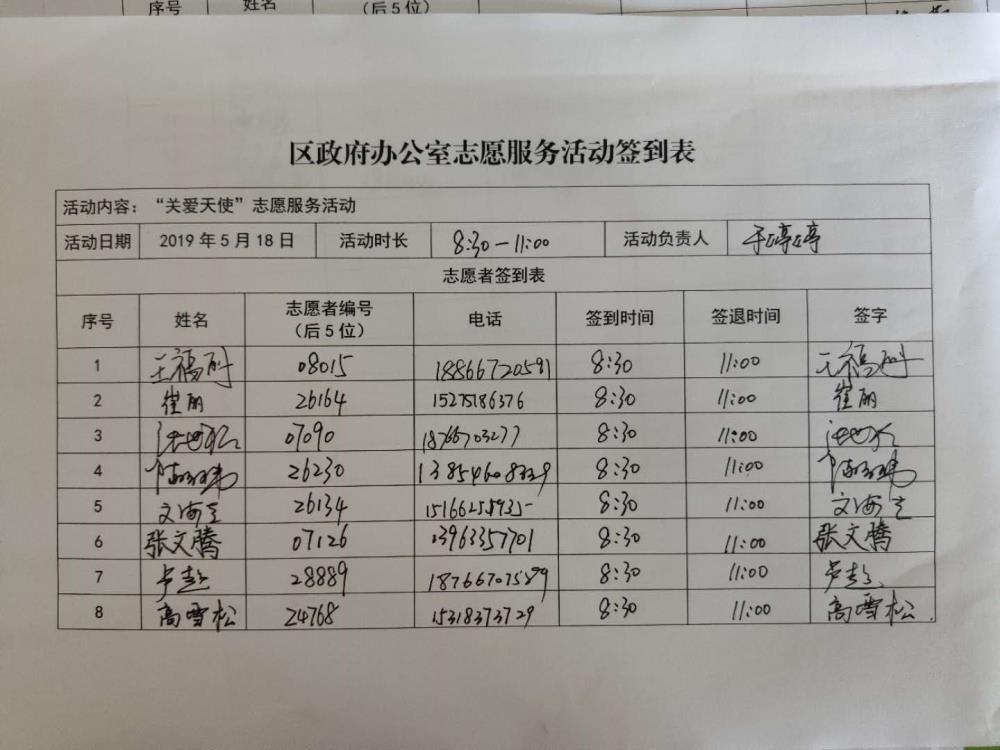 序号 姓名 (后5位)
区政府办公室志愿服务活动签到表
活动内容：“关爱天使”志愿服务活动
活动日期 2019年5月18日 活动时长 8:30-11:00 活动负责人 于婷婷
志愿者签到表
序号 姓名 志愿者编号（后5位） 电话 签到时间 签退时间 签字
1 王福刚 08015 18866720591 8:30 11:00 王福刚
2 崔丽 26164 15275186376 8:30 11:00 崔丽
3 07090 18766703277 8:30 11:00
4 26230 8:30 11:00
5 文海兰 26134 8:30 11:00 文海兰
6 张文腾 07126 13963357701 8:30 11:00 张文腾
7 卢超 28889 18766707589 8:30 11:00 卢超
8 高雪松 24768 15318373729 8:30 11:00 高雪松